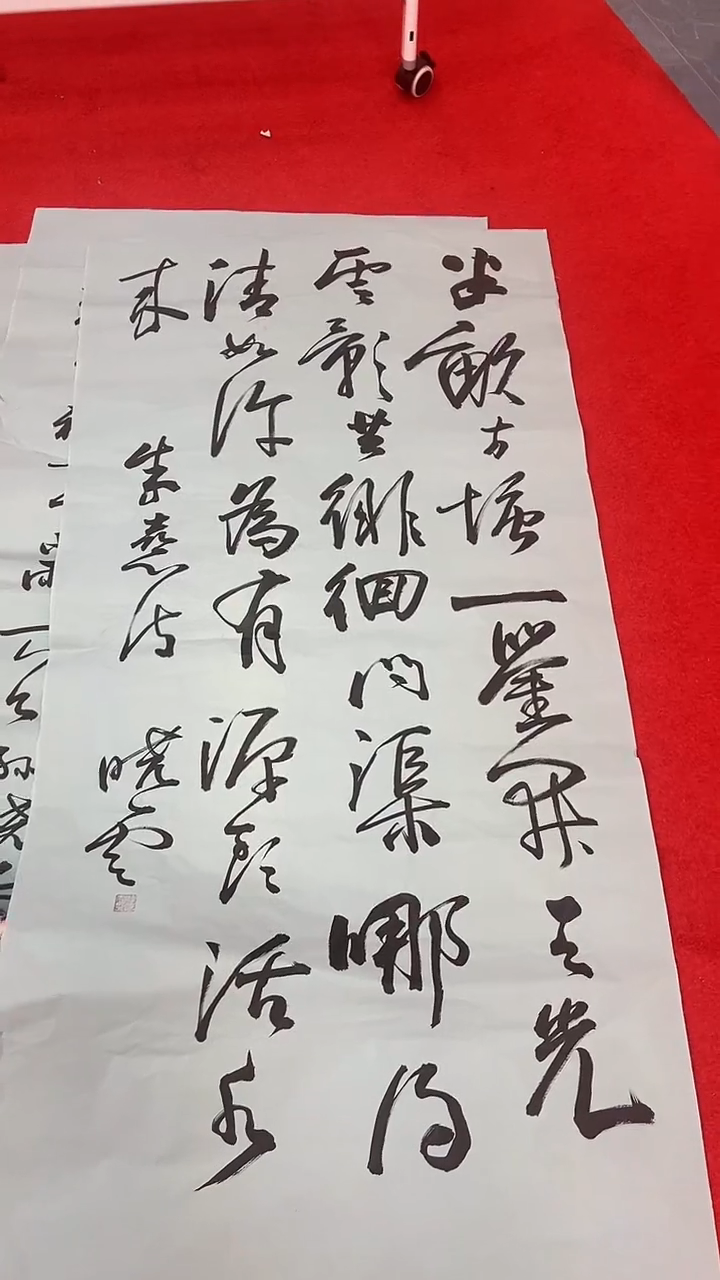 半畝方塘一鑒開天光
雲影共徘徊问渠哪得
清如许為有源头活水
来 朱熹诗 晓雲